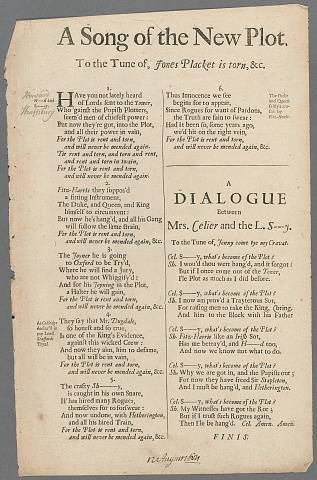 A Song of the New Plot.
To the Tune of, Jones Placket is torn, &c.
1.
HAve you not lately heard
of Lords sent to the Tower,
Who 'gainst the Popish Plotters,
seem'd men of chiefest power:
But now they're got, into the Plot,
and all their power in vain,
For the Plot is rent and torn,
and will never be mended again.
Tis rent and torn, and torn and rent,
and rent and torn in twain,
For the Plot is rent and torn,
and will never be mended again.
2.
Fitz-Harris they suppos'd
a fitting Instrument,
The Duke, and Queen, and King
himself to circumvent:
But now he's hang'd, and all his Gang
will follow the same strain,
For the Plot is rent and torn,
and will never be mended again, &c.
3.
The Joyner he is going
to Oxford to be Try'd,
Where he will find a Jury,
who are not Whiggify'd:
And for his Joyning in the Plot,
a Halter he will gain,
For the Plot is rent and torn,
and will never be mended again, &c.
4.
They say that Mr. Dugdale,
so honest and so true,
Is one of the King's Evidence,
against this wicked Crew:
And now they aim, him to defame,
but all will be in vain,
For the Plot is rent and torn,
and will never be mended again, &c.
5.
The crafty Sh---y,
is caught in his own Snare,
H' has hired many Rogues,
themselves for to forswear:
And now undone, with Hetherington,
and all his hired Train,
For the Plot is rent and torn,
and will never be mended again, &c.
6.
Thus Innocence we see
begins for to appear,
Since Rogues for want of Pardons,
the Truth are fain to swear:
Had it been so, some years ago,
we'd hit on the right vein,
For the Plot is rent and torn,
and will never be mended again, &c.
The Duke
and Queen
A
DIALOGUE
Between
Mrs. Celier and the L. S---y.
To the Tune of, Jenny come tye my Cravat.
Cel. S---y, what's become of the Plot?
Sh. I wou'd thou wert hang'd, and it forgot:
But if I once come out of the Tower,
I'le Plot as much as I did before.
Cel. S---y, what's become of the Plot?
Sh. I now am prov'd a Trayterous Sot,
For raising men to take the King, (bring,
And him to the Block with his Father
Cel. S---y, what's become of the Plot?
Sh. Fitz-Harris like an Irish Sot,
Has me betray'd, and H---d too,
And now we know not what to do.
Cel. S---y, what's become of the Plot?
Sh. Why we are got in, and the Papists out;
For now they have freed Sir Stapleton,
And I must be hang'd, and Hetherington.
Cel. S---y, what's become of the Plot?
Sh. My Witnesses have got the Rot;
But if I trust such Rogues again,
Then I'le be hang'd. Cel. Amen. Amen.
FINIS.